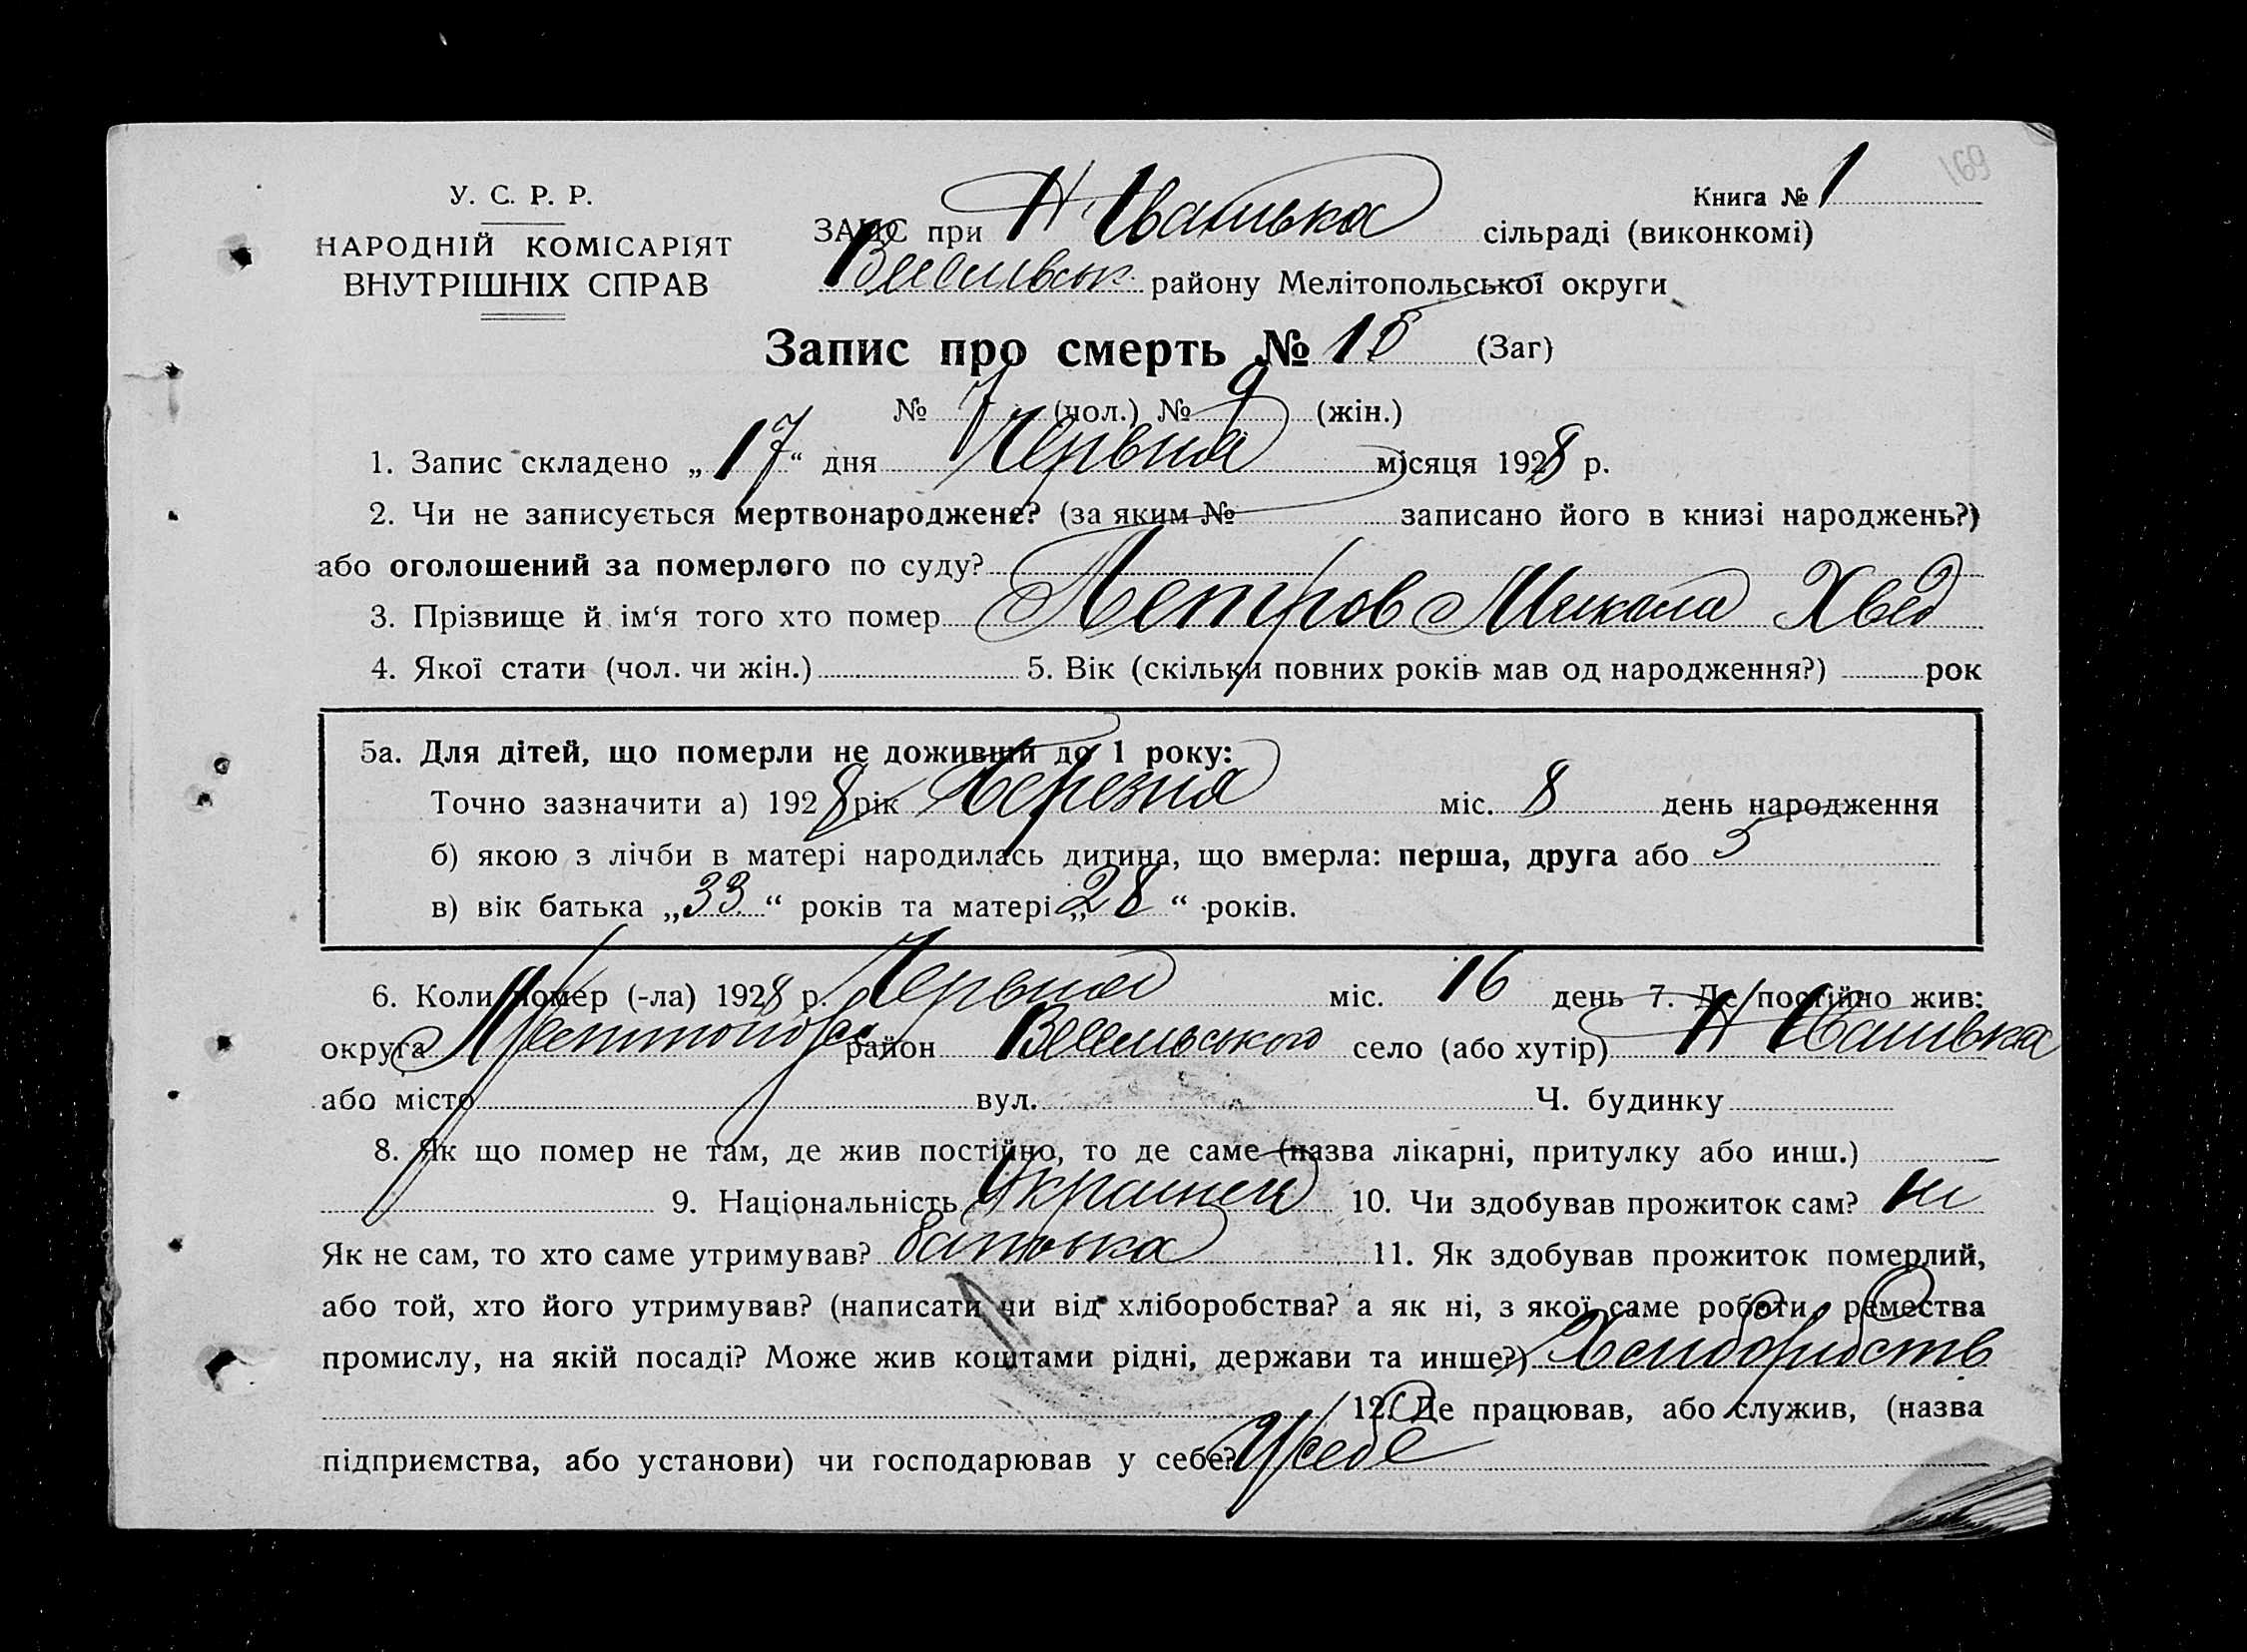 169
У. С. Р. Р.
НАРОДНІЙ КОМІСАРІЯТ
ВНУТРІШНІХ СПРАВ
Книга № 1
ЗАГС при Н Іванівка сільраді (виконкомі)
Веселівськ району Мелітопольської округи
Запис про смерть № 15 (Заг)
№ 7 (чол.) № 9 (жін.)
1. Запис складено „17“ дня Червня місяця 1928 р.
2. Чи не записується мертвонароджене? (за яким № записано його в книзі народжень?)
або оголошений за померлого по суду?
3. Прізвище й ім‘я того хто помер Петров Микола Хвед
4. Якої стати (чол. чи жін.) 5. Вік (скільки повних років мав од народження?) рок
5а. Для дітей, що померли не доживши до 1 року:
Точно зазначити а) 1928 рік Березня міс. 8 день народження
б) якою з лічби в матері народилась дитина, що вмерла: перша, друга або 5
в) вік батька „33“ років та матері „28“ років.
6. Коли помер (-ла) 1928 р. Червня міс. 16 день 7. Де постійно жив:
округа район Веселівського село (або хутір) Н Іванівка
або місто вул. Ч. будинку
8. Як що помер не там, де жив постійно, то де саме (назва лікарні, притулку або инш.)
9. Національність Українец 10. Чи здобував прожиток сам? ні
Як не сам, то хто саме утримував? батька 11. Як здобував прожиток померлий,
або той, хто його утримував? (написати чи від хліборобства? а як ні, з якої саме роботи, ремества
промислу, на якій посаді? Може жив коштами рідні, держави та инше?)
12. Де працював, або служив, (назва
підприємства, або установи) чи господарював у себе? У себе